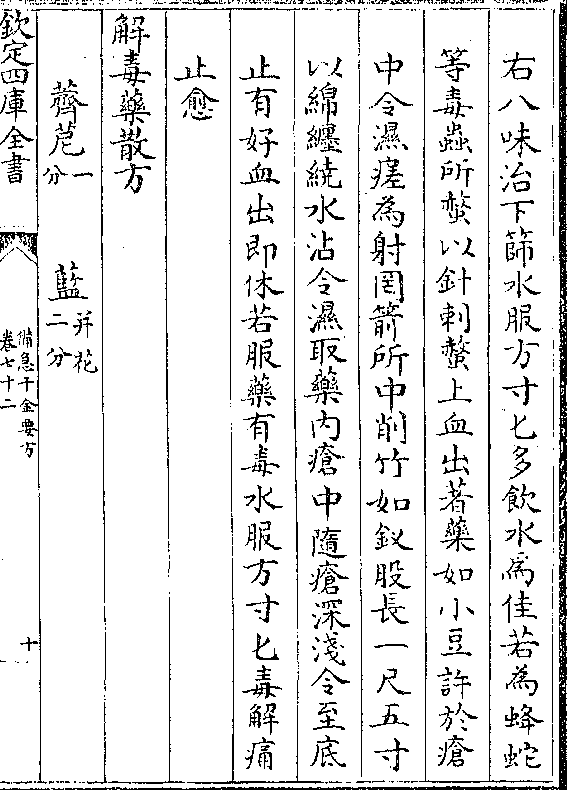 右八味治下篩水服方寸匕多飲水為佳若為蜂蛇
等毒蟲所螫以針刺螫上血出著藥如小豆許於瘡
中令濕瘥為射罔箭所中削竹如釵股長一尺五寸
以綿纏繞水沾令濕取藥内瘡中隨瘡深淺令至底
止有好血出即休若服藥有毒水服方寸匕毒解痛
止愈
解毒藥散方
薺苨一分 藍并花二分
欽定四庫全書
備急千金要方
卷七十二
十